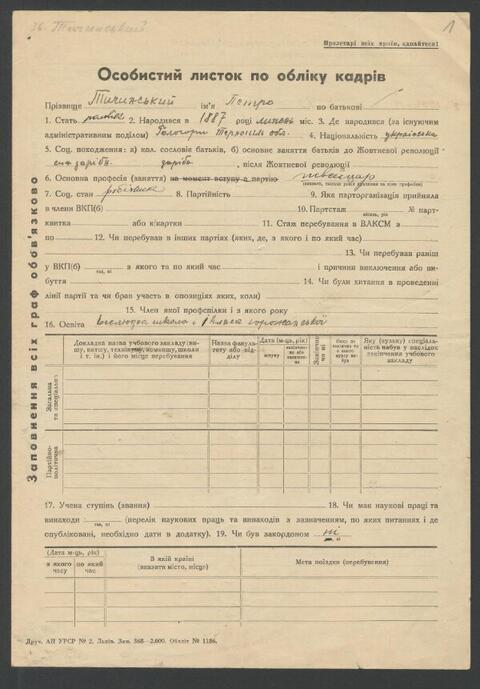 36. Тичинський
1
Пролетарі всіх країн, єднайтеся!
Особистий листок по обліку кадрів
Прізвище Тичинський ім'я Петро по батькові
1. Стать 2. Народився в 1887 році липень міс. 3. Де народився (за існуючим
адміністративним поділом) Гологори Терноп. обл. 4. Національність українська
5. Соц. походження: а) кол. сословіє батьків, б) основне заняття батьків до Жовтневої революції
, після Жовтневої революції
6. Основна професія (заняття) на момент вступу в партію швейцар
7. Соц. стан робітник 8. Партійність 9. Яка парторганізація прийняла
в члени ВКП(б) 10. Партстаж № парт-
місяць, рік
квитка або к/картки 11. Стаж перебування в ВЛКСМ з
по 12. Чи перебував в інших партіях (яких, де, з якого і по який час)
13. Чи перебував раніш
у ВКП(б) з якого та по який час і причини виключення або ви-
так, ні
буття 14. Чи були хитання в проведенні
лінії партії та чи брав участь в опозиціях, яких, коли)
15. Член якої профспілки і з якого року
16. Освіта школа і 1 класа
Докладна назва учбового закладу (ви-
шу, втишу, технікуму, комвишу, школи
і т. ін.) і його місце перебування
Назва факуль-
тету або від-
ділу
Дата (м-ць, рік)
вступу
Закінчив
чи ні
Яку (вузьку) спеціаль-
ність набув в наслідок
закінчення учбового
закладу
Загальна
та спеціальна
Партійно-
політична
17. Учена ступінь (звання) 18. Чи має наукові праці та
винаходи (перелік наукових праць та винаходів з зазначенням, по яких питаннях і де
так, ні
опубліковані, необхідно дати в додатку). 19. Чи був закордоном ні
Дата (м-ць, рік)
з якого
часу
по який
час
В якій країні
(вказати місто, місце)
Мета поїздки (перебування)
Друк. АН УРСР № 2. Львів. Зам. 368—2.000. Обліт № 1186.
Заповнення всіх граф обов'язково